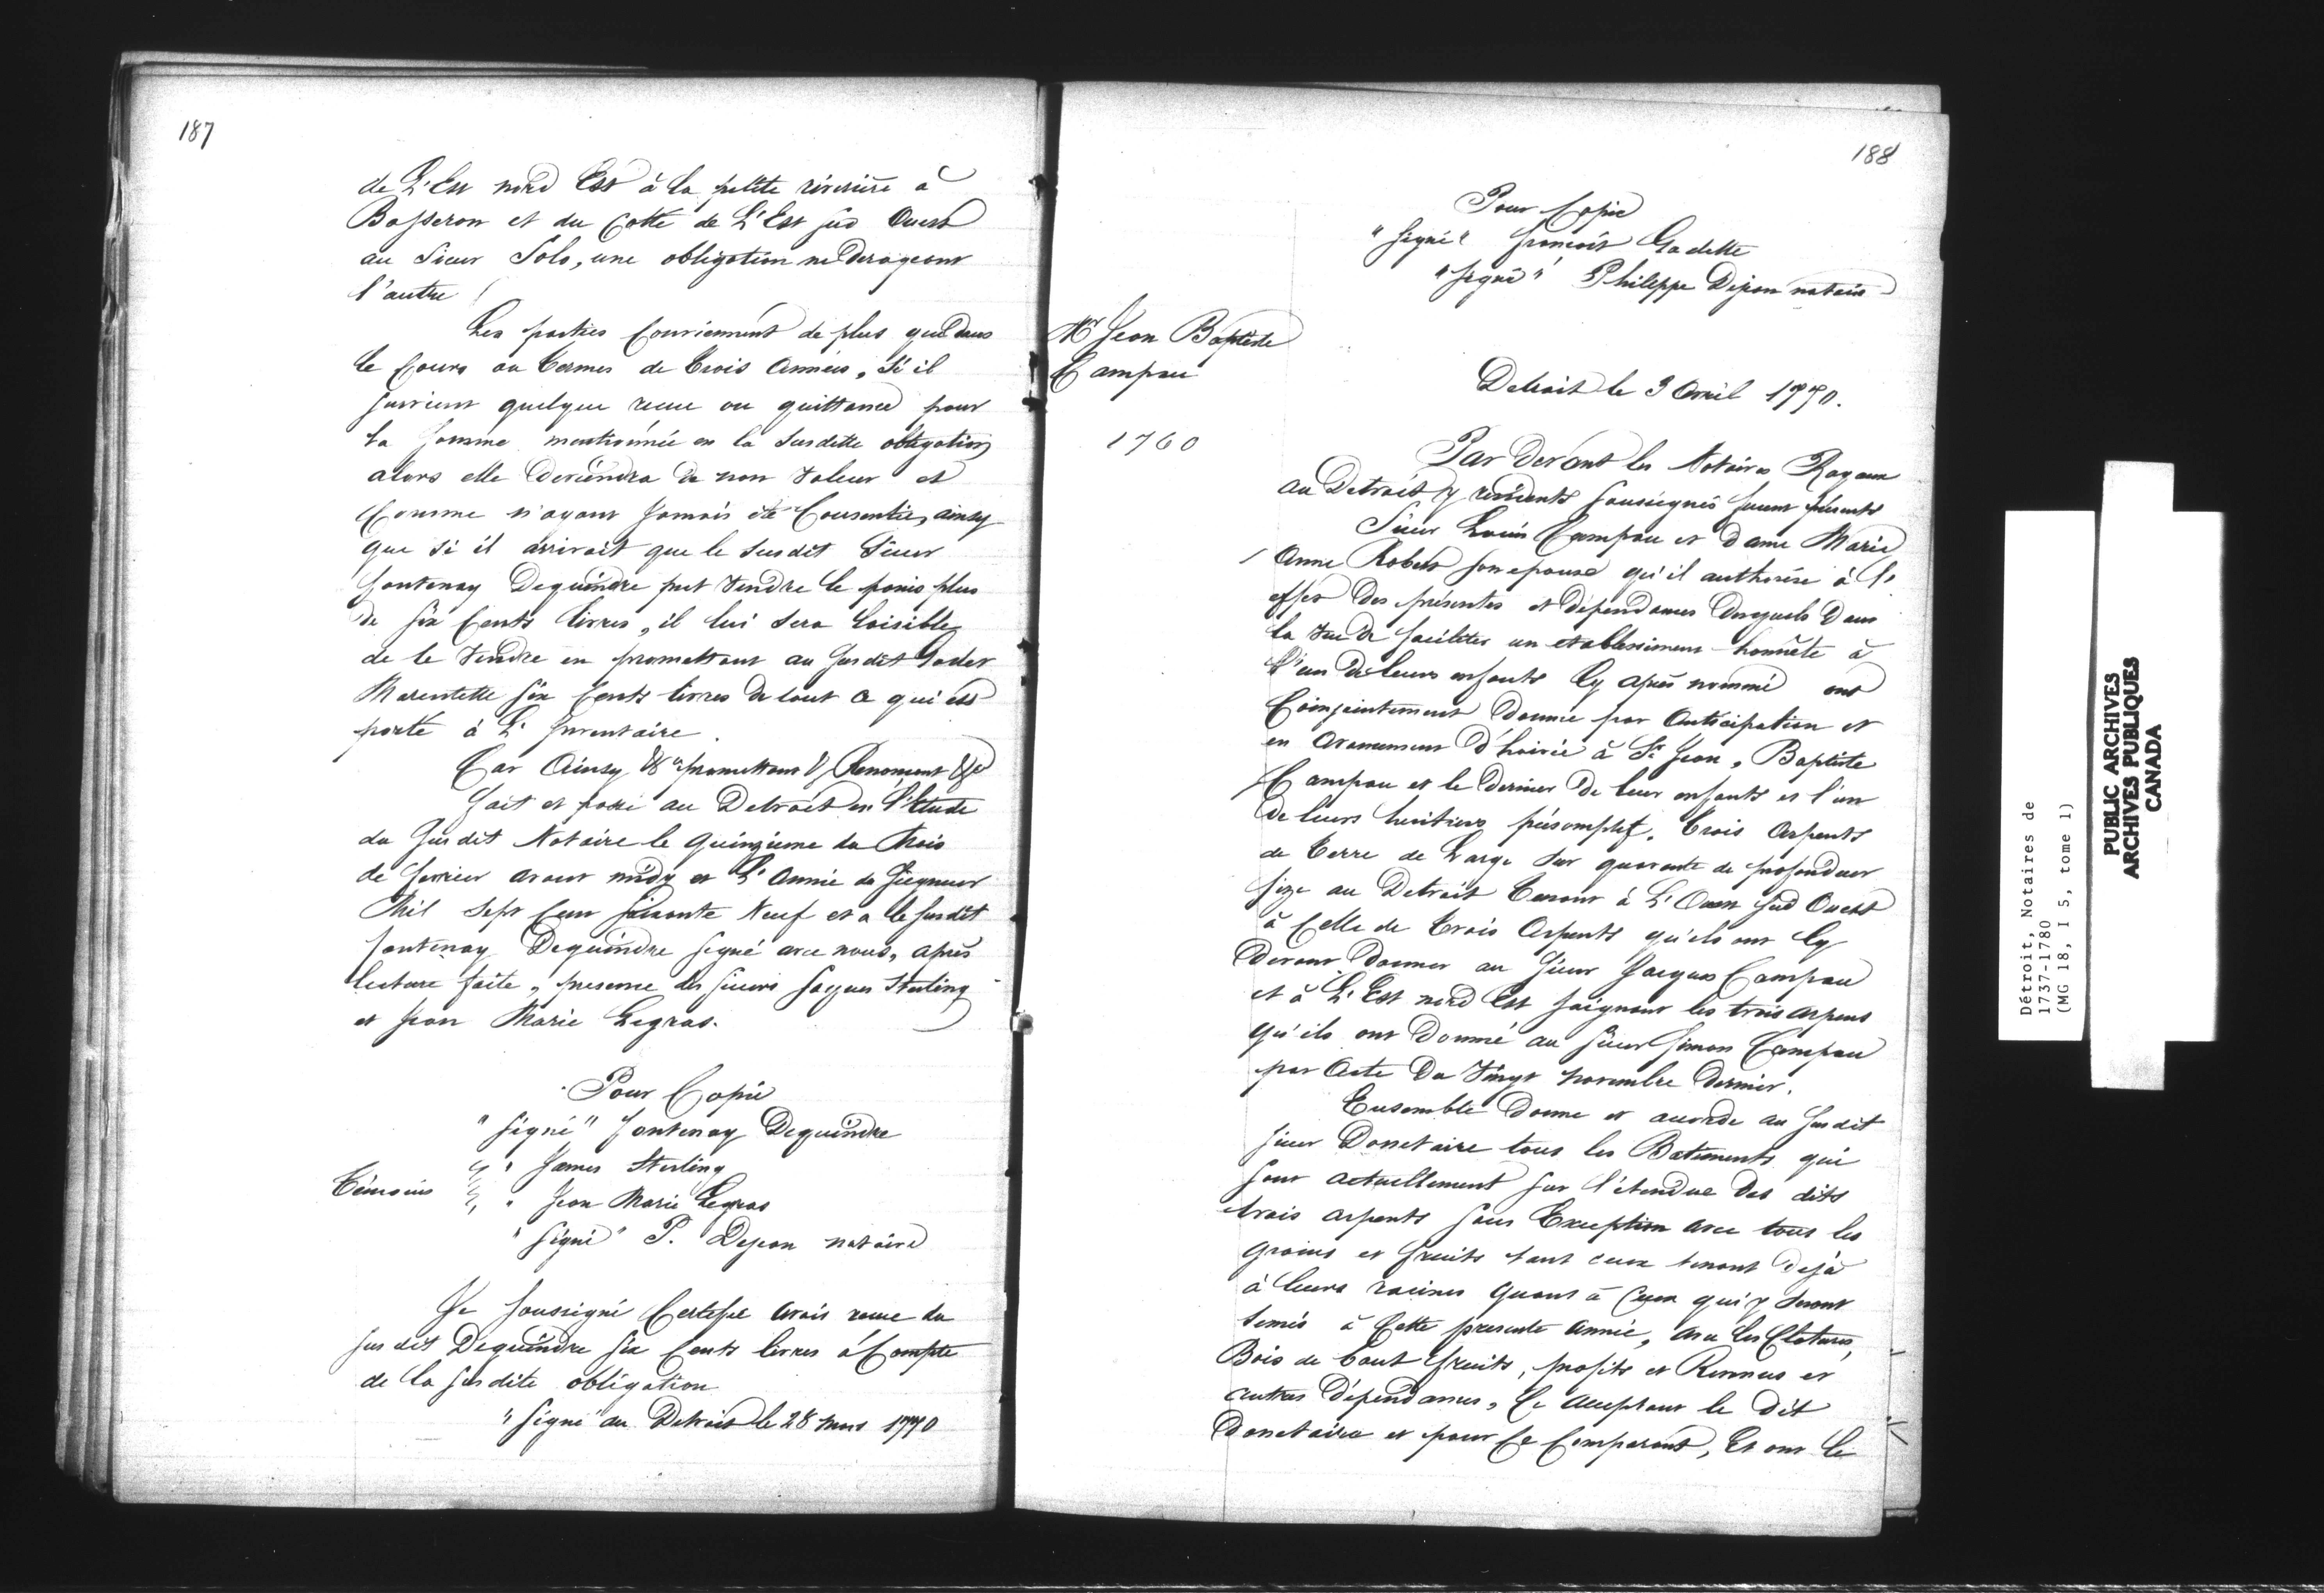 187
de L'Est nord Est à la petite rivierre à
Bosseron et du Cotté de L'Est sud Ouest
au Sieur Solo, une obligation ne Derogeant
l'autre
Les parties Conviennent de plus que dans
le Cours ou termes de trois Années, Si il
survient quelque recue ou quittance pour
la somme mentionnée en la susditte obligation
alors elle Deviendra de non valeur et
Comme n'ayant Jamais été Consentie, ainsy
que si il arrivait que le susdit Sieur
fontenay Dequindre put vendre le plus
de six Cents livres, il lui sera loisible
de le vendre en promettant au susdit
Marentette six Cents livres de tout ce qui est
porté à L'Inventaire.
Car Ainsy &a promettant & Renonçant &a
fait et passé au Detroit en l'Etude
du susdit Notaire le quinzieme du Mois
de fevrier avant midy et L'Année du Seigneur
Mil Sept Cent soixante Neuf et a le susdit
fontenay Dequindre signé avec nous, après
lecture faite, presence des sieurs Jaques Sterling
et Jean Marie Legras.
Pour Copie
" Signé " fontenay Dequindre
" James Sterling
Témoins " Jean Marie Legras
" Signé " P. Dejean notaire
Je soussigné Certifie avoir recue du
susdit Dequindre six Cents livres à Compte
de la susdite obligation
" Signé " au Detroit le 28 mars 1770
188
Pour Copie
" Signé " françois Gadette
" Signé " Philippe Dejean notaire
Mr Jean Baptiste
Campau
1760
Detroit le 3 Avril 1770.
Par Devant les Notaires Royaux
au Detroit y residents soussignés furent présents
Sieur Louis Campau et Dame Marie
Anne Robert son epouse qu'il authorise à l'
effet des présentes et dépendances desquels Dans
la vue de faciliter un etablissement honnête à
l'un de leurs enfants Cy après nommé ont
Conjointement Donné par Anticipation et
en avancement d'hoirie à Sr Jean, Baptiste
Campau et le dernier de leur enfants et l'un
de leurs heritiers présomptif, trois Arpents
de terre de Large sur quarante de profondeur
size au Detroit tenant à L'Ouest sud Ouest
à Celle de trois Arpents qu'ils ont Cy
Devant Donner au Sieur Jacques Campau
et à L'Est nord Est joignant les trois arpens
qu'ils ont Donné au Sieur Simon Campau
par Acte Du vingt novembre Dernier.
Ensemble Donne et accorde au susdit
Sieur Donetaire tous les Batiments qui
sont actuellement sur l'étendue des dits
trois arpents sans Exception avec tous les
grains et fruits tant ceux tenant Déjà
à leurs racines quant à Ceux qui y seront
semés à Cette presente année, avec les Clotures,
Bois de bout fruits, profits et Revenus et
autres dépendances, Ce acceptant le Dit
Donetaire et pour Ce Comparant, Et ont le
Détroit, Notaires de
1737-1780
(MG 18, I 5, tome 1)
PUBLIC ARCHIVES
ARCHIVES PUBLIQUES
CANADA